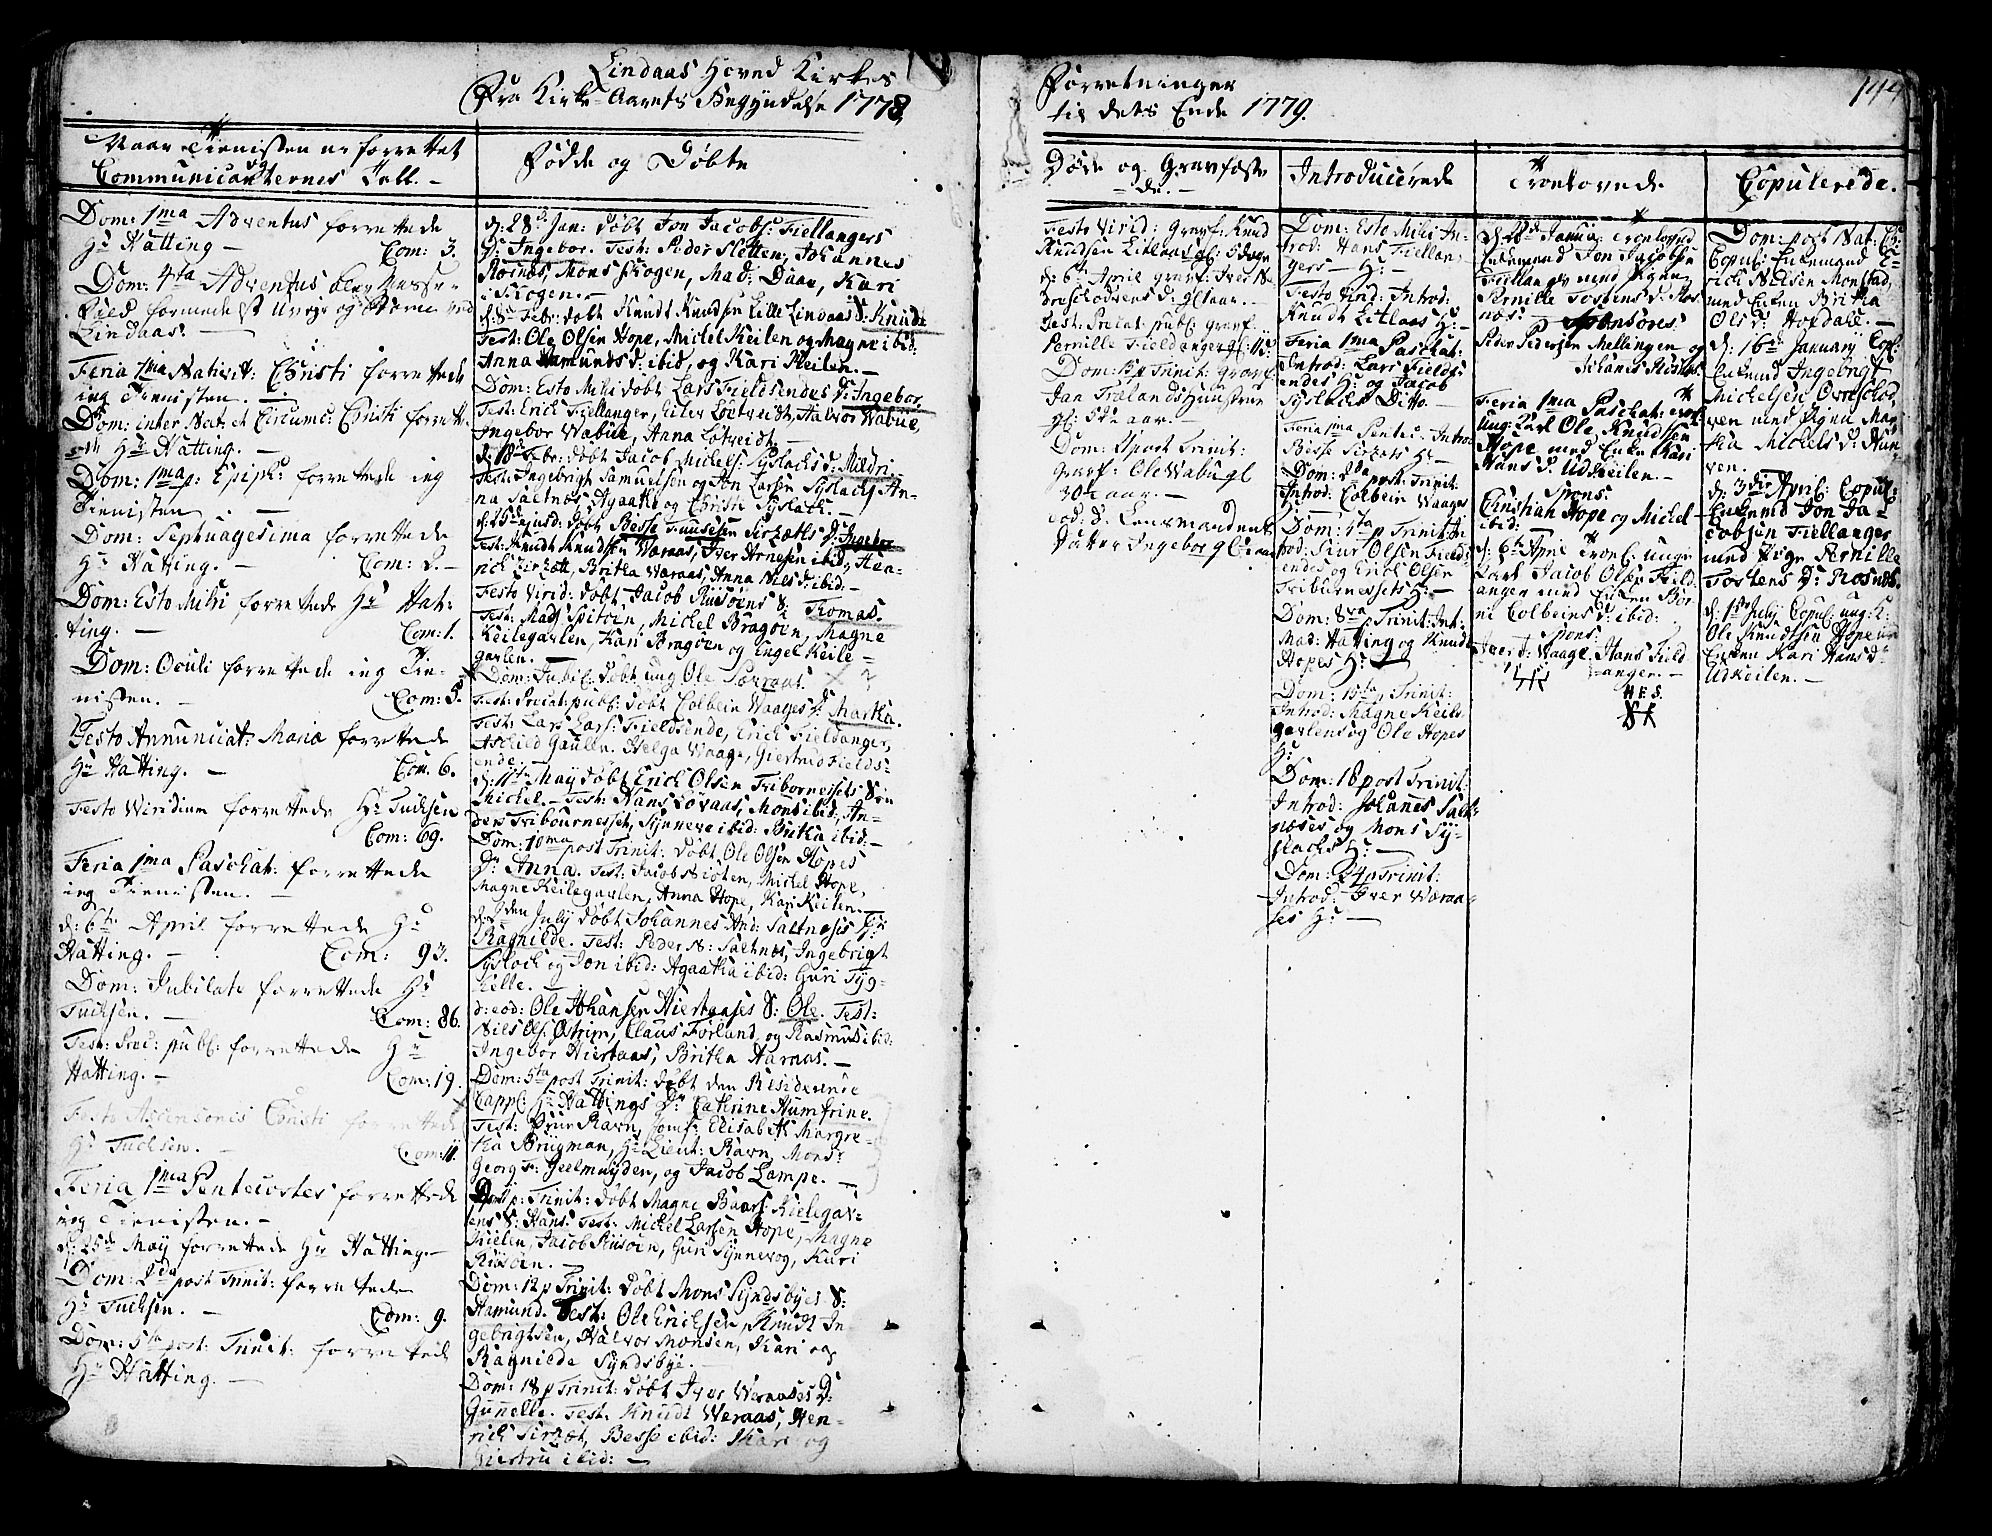 Lindaas Hoved Kirkes
Fra Kirke-Aarets Begyndelse 1778,
Naar Tienisten er forrettet
og
Communicanternes Tall. -
Dom: 1ma Adventus forrettede
Hr Hatting - Com: 3.
Dom: 4ta Adventus blev Messe-
fald formedelst
Lindaas. -
Feria 1ma Nativit: Christi forrettede
ing Tienisten. -
Dom: inter Nat: et Circumc: Christi forrette-
de Hr Hatting. -
Dom: 1ma p: Epiph: forrettede ing
Tienisten. -
Dom: Septuagesima forrettede
Hr Hatting. - Com: 2. -
Dom: Esto Mihi forrettede Hr Hat-
ting. - Com: 1.
Dom: Oculi forrettede ing Tie-
nisten. - Com: 5.
Festo Annunciat: Mariæ forrettede
Hr Hatting. - Com. 6.
Festo Viridium forrettede Hr Tuchsen
Com: 69.
Feria 1ma Paschat: forrettede
ing Tienisten. -
d: 6te April forrettede Hr
Hatting. - Com: 93.
Dom: Jubilate forrettede Hr
Tuchsen. - Com: 86.
Fest: Prec: publ: forrettede Hr
Hatting. - Com: 19.
Festo Ascensionis Christi forrettede
Hr Tuchsen. - Com: 11.
Feria 1ma Pentecostes forrettede
ing Tienisten. -
d: 25de May forrettede Hr Hatting. -
Dom: 2da post Trinit: forrettede
Hr Tuchsen. - Com: 9.
Dom: 5ta post: Trinit: forrettede
Hr Hatting. -
Fødde og Døbte
d: 28de Jan: døbt Jon Jacobs: Fiellangers
D: Ingebor. Test: Peder Sletten, Johannes
Rosnes, Mons Skogen, Mad: Daae, Kari
Skogen. -
d: 8de Febr: døbt Knudt Knudsen Lille Lindaas S: Knudt
Test: Ole Olsen Hope, Michel Keilen og Magne ibid:
Anna Amunds d: ibid, og Kari Keilen. -
Dom: Esto Mihi døbt Lars Fieldsendes D: Ingebor.
Test: Erich Fiellanger, Eiler Lotveidt, Halvor Wabüe,
Ingebor Wabüe, Anna Lotveidt. -
d: 18de Febr: døbt Jacob Michels: Syslachs D: Mildri
Test: Ingebrigt Samuelsen og Jon Larsen Syslach, An-
na Saltnes, Agaatha og Christi Syslach. -
d: 25de ejusd: døbt Besse Sirzets D: Ingebor
Test: Knudt Knudsen Wæraas, Iver Arnesen ibid, Hen-
rich Sirzett, Britha Wæraas, Anna Nils d: ibid: -
Festo Virid: døbt Jacob Riisøens S: Thomas.
Test: Mads Spitøin, Michel Bragøen, Magne
Keilegavlen, Kari Bragøen og Engel Keile-
gavlen. -
Dom: Jubil: døbt ung Ole
Fest: Precat: publ: døbt Colbein Waages D: Martha.
Test: Lars Lars: Fieldsende, Erich Fieldanger,
Aschild Gaulen, Helga Waage, Giertrud Fields-
ende. -
d: 11te May døbt Erich Olsen Tribornesets Søn
Michel. - Test: Hans Lovaas, Mons ibid, An-
ders Tribournesset, Synneve ibid: Britha ibid: -
Dom: 10ma post Trinit: døbt Ole Olsen Hopes
D: Anna. Test: Jacob Skioten, Michel Hope,
Magne Keilegavlen, Anna Hope, Kari Keilen. -
d: 2den July døbt Johannes And: Saltnesis D:
Ragnilde. Test: Peder S: Saltnes, Ingebrigt
Syslach og Jon ibid: Agaatha ibid: Guri Syg-
helle. -
d: eod: Ole Johansen Hiertaases S: Ole. Test:
Nils Ols: Østrim, Claus Forland, og Rasmus ibid:
Ingebor Hiertaas, Britha Haraas. -
Dom: 5ta post Trinit: døbt den Residerende
Cappl: Hr Hattings D: Cathrine Humfrine.
Test: Frue Ravn, Jomf: Elisabeth Margre-
tha Brügman, Hr Lieut: Ravn, Monsr
Georg F: Geelmuyden, og Jacob Lampe. -
p: Trinit: døbt Magne Baars: Kielegav-
lens S: Hans. Test: Michel Larsen Hope, Magne
Kielen, Jacob Riisøin, Guri Synnevog, Kari
Riisøin. -
Dom: 12 p Trinit: døbt Mons Syndsbyes S:
Hamund. Test: Ole Erichsen, Knudt In-
gebrigtsen, Halvor Monsen, Kari og
Ragnilde Syndsbye. -
Dom: 18 p Trinit: døbt Iver Weraases D:
Gunelle. Test: Knudt Weraas, Hen-
rich Sirzet, Besse ibid: Kari og
Giertru ibid: -
Forretninger 144
til dets Ende 1779.
Døde og Gravfæste-
de. -
Festo Virid: Gravf: Knud
Knudsen Litlaas gl: 5 dage
d: 6te April gravf: Iver
gl 1 aar. -
Fest: Precat: publ: gravf.
Pernille Fieldanger gl:
Dom: p Trinit: gravf:
Jan Fralands Hustrue
gl: 52 aar. -
Dom: post Trinit:
Gravf: Ole Wabu gl
30 aar. -
eod: d: Lensmandens
Datter Ingebor gl:
Introducerede
Dom: Esto Mihi In-
trod: Hans Fiellan-
gers H: -
Festo Virid: Introd:
Knudt Litlaas H: -
Feria 1ma Paschat:
Introd: Lars Fields-
endes H: og Jacob
Syslachs Ditto. -
Feria 1ma Pentec: Introd
Besse Sirzets H: -
Dom: 2da post Trinit:
Introd: Colbein Waages
Dom: 5ta p Trinit: In-
trod: Siur Olsen Fields-
endes og Erich Olsen
Tribournessets H: -
Dom: 8va p Trinit: Int:
Mad: Hatting og Knudt
Hopes H: -
Dom: 10ta p Trinit:
Introd: Magne Keile-
gavlens og Ole Hopes
H:
Dom: 18 post Trinit:
Introd: Johanes Salt-
neses og Mons Sy-
slachs H: -
Dom: 24 p Trinit:
Introd: Iver Weraa-
ses H: -
Troelovede
Janua: Troelovet
Enkemand Jon Jacobsen
Fiellanger med Pigen
Pernille Tostens d: Ros-
nes. - Sponsores.
Peder Pedersen Mellingen og
Johanes
Feria 1ma Paschat: Troel:
ung: Karl Ole Knudsen
Hope med Enke Kari
Hans d: Udkeilen. -
Spons:
Christian Hope og Michel
ibid: -
d: 6te April Troel: unge
Karl Jacob Olsen Field-
anger med Enken Bor-
ni Colbeins d: ibid:
Spons:
Siuert Waage. Hans Field-
anger. -
H. F. S.
Copulerede.
Dom: post Nat: Ch:
Copul: Enkemand E-
rich Nielsen Monstad,
med Enken Britha
Ols d: Hopdahl. -
d: 16de January Cop:
Enkemd Ingebrigt
Michelsen
med Pigen Mar-
tha Michels d: Hun-
ven.
d: 3die April: Copul:
Enkemd Jon Ja-
cobsen Fiellanger
med Pige Pernille
Tostens d: Rosnes.
d: 1ste July Copul: ung: K:
Ole Knudtsen Hope m
Enken Kari Hans d:
Udkeilen. -